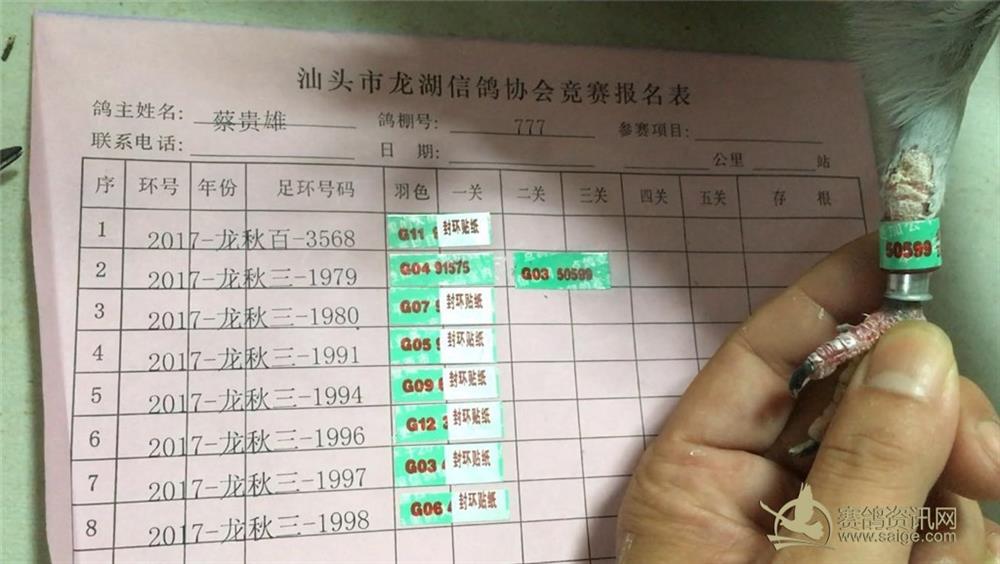 汕头市龙湖信鸽协会竞赛报名表
鸽主姓名: 蔡贵雄 鸽棚号: 777 参赛项目:
联系电话: 日 期: 公里 站
序 环号 年份 足环号码 羽色 一关 二关 三关 四关 五关 存 根
1 2017-龙秋百-3568 G11 封环贴纸
2 2017-龙秋三-1979 G04 91575 G03 50599
3 2017-龙秋三-1980 G07 封环贴纸
4 2017-龙秋三-1991 G05 封环贴纸
5 2017-龙秋三-1994 G09 封环贴纸
6 2017-龙秋三-1996 G12 封环贴纸
7 2017-龙秋三-1997 G03 封环贴纸
8 2017-龙秋三-1998 G06 封环贴纸
50599
赛鸽资讯网
www.saige.com